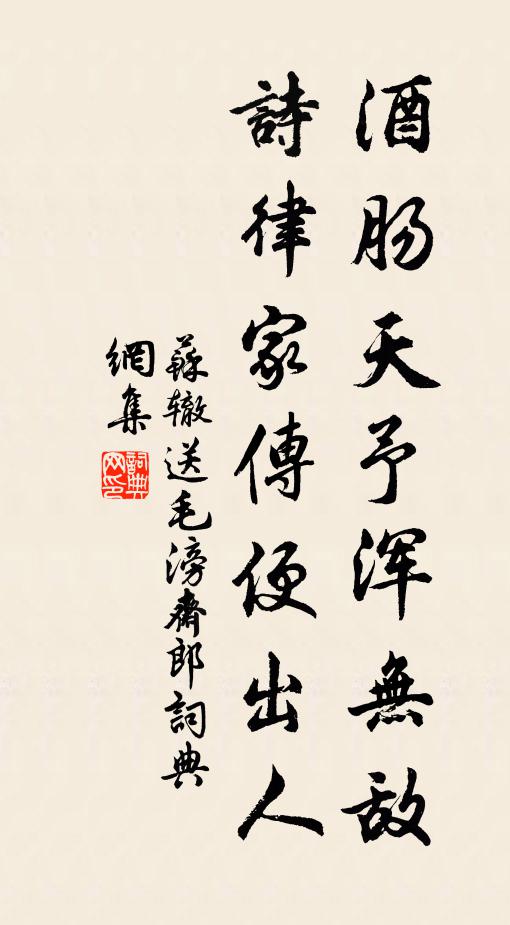 酒肠天予浑無敌
詩律家傳便出人
蘇辙送毛滂齋郎詞典
網集
詞典网印